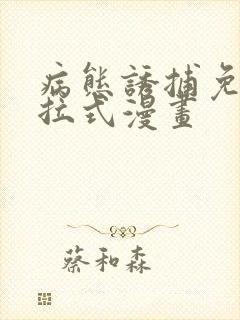 病態誘捕免
拉式漫畫
蔡和森